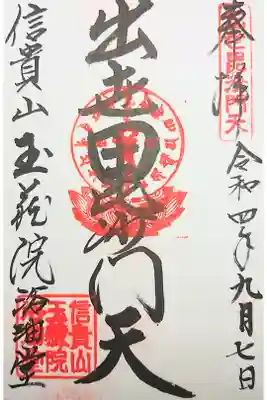 奉拝 令和四年九月七日
出世毘沙門天
信貴山 玉蔵院浴油堂
信貴山
玉蔵院